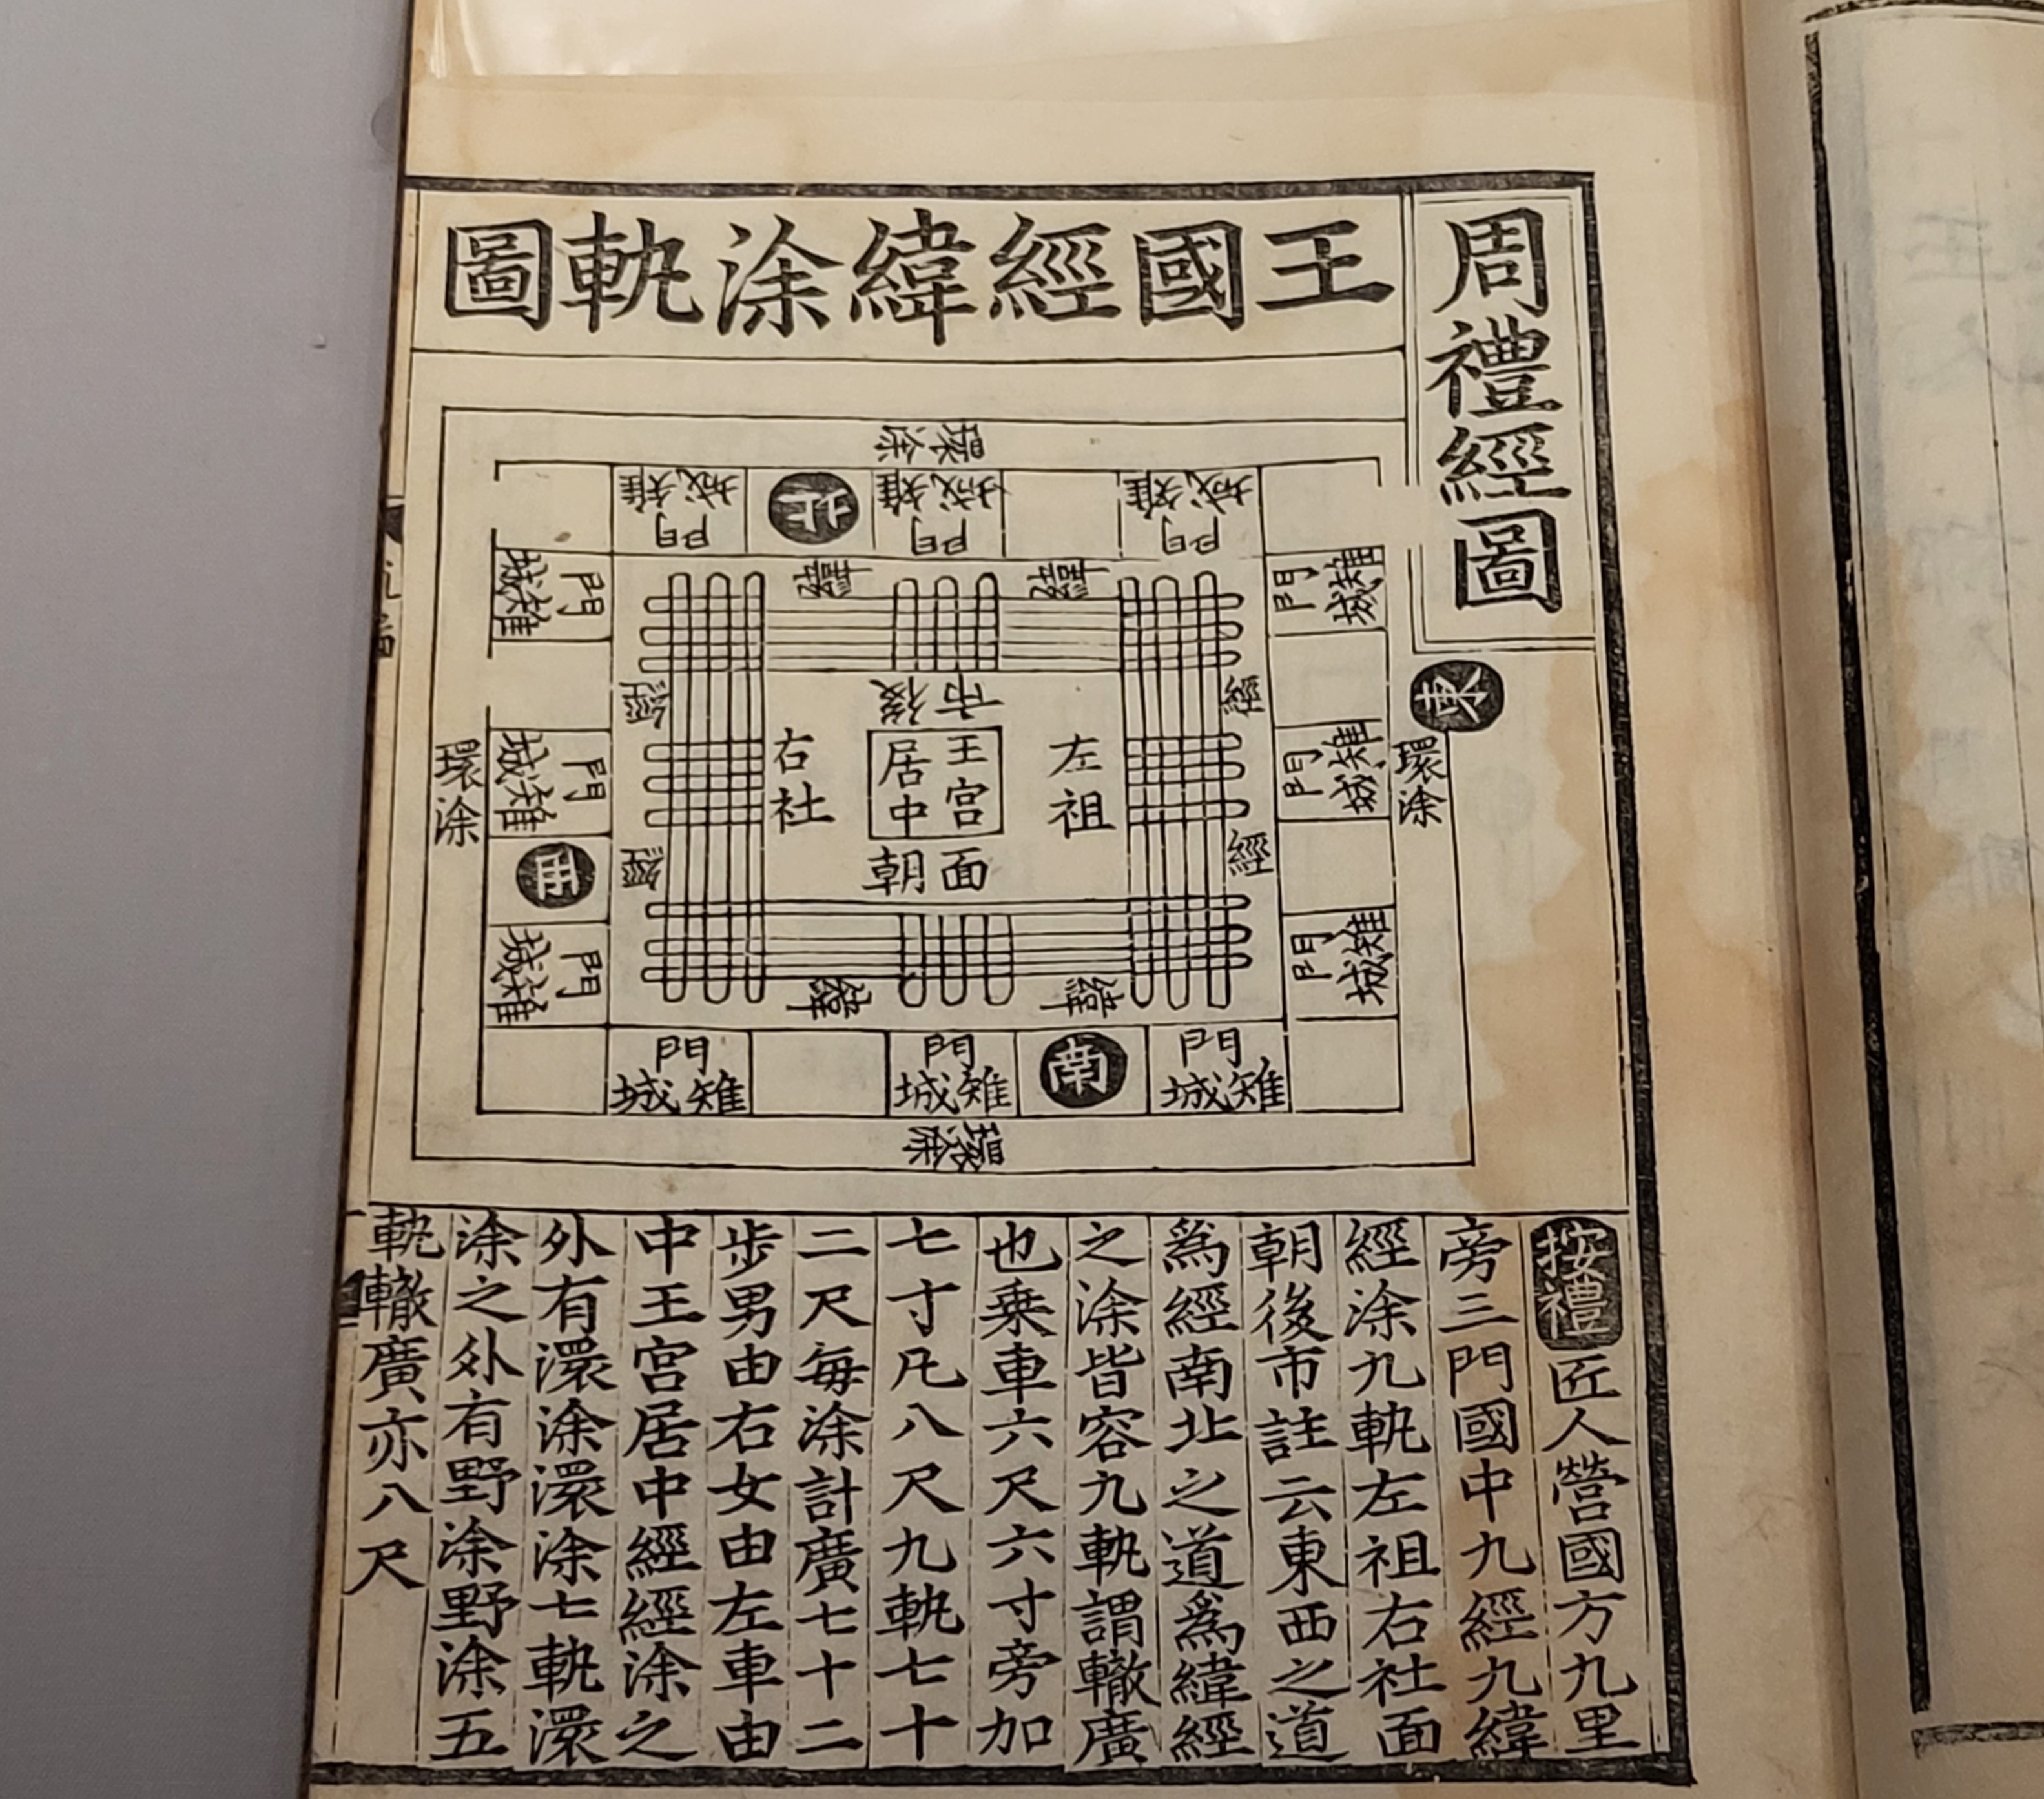 周禮經圖
王國經緯涂軌圖
環涂
城雉門
北
城雉門
城雉門
緯
緯
門城雉
門城雉
東
門城雉
門城雉
環涂
環涂
門城雉
門城雉
經
經
經
經
後市
左祖
王宮居中
右社
面朝
緯
緯
門城雉
南
門城雉
門城雉
環涂
按禮匠人營國方九里
旁三門國中九經九緯
經涂九軌左祖右社面
朝後市註云東西之道
爲經南北之道爲緯經
之涂皆容九軌謂轍廣
也乗車六尺六寸旁加
七寸凡八尺九軌七十
二尺每涂計廣七十二
步男由右女由左車由
中王宮居中經經涂之
外有環涂環涂七軌環
涂之外有野涂野涂五
軌轍廣亦八尺